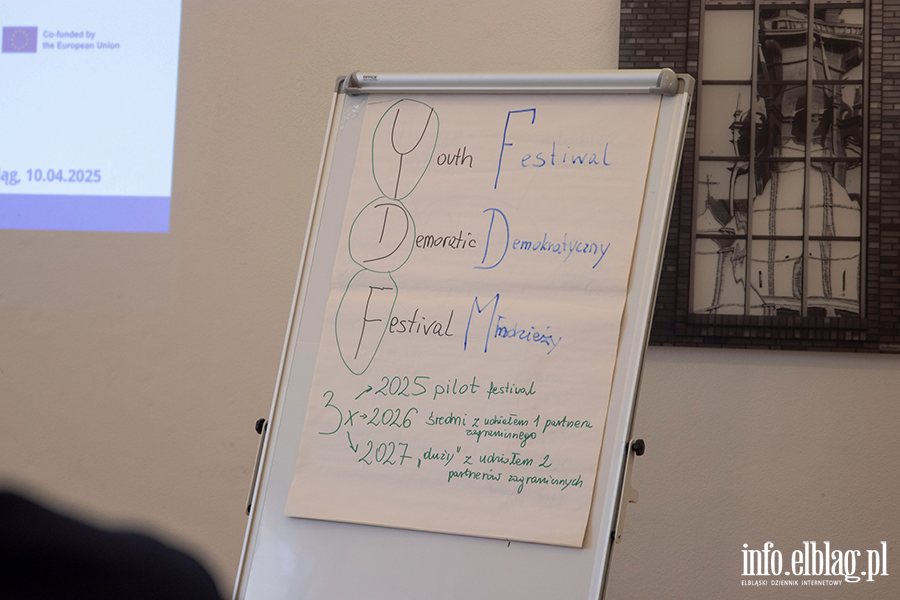 Co-funded by
the European Union
ąg, 10.04.2025
Youth Festiwal
Demoratic Demokratyczny
Festival Młodzieży
3x → 2025 pilot festival
→ 2026 średni z udziałem 1 partnera
zagranicznego
→ 2027 „duży" z udziałem 2
partnerów zagranicznych
info.elblag.pl
ELBLĄSKI DZIENNIK INTERNETOWY